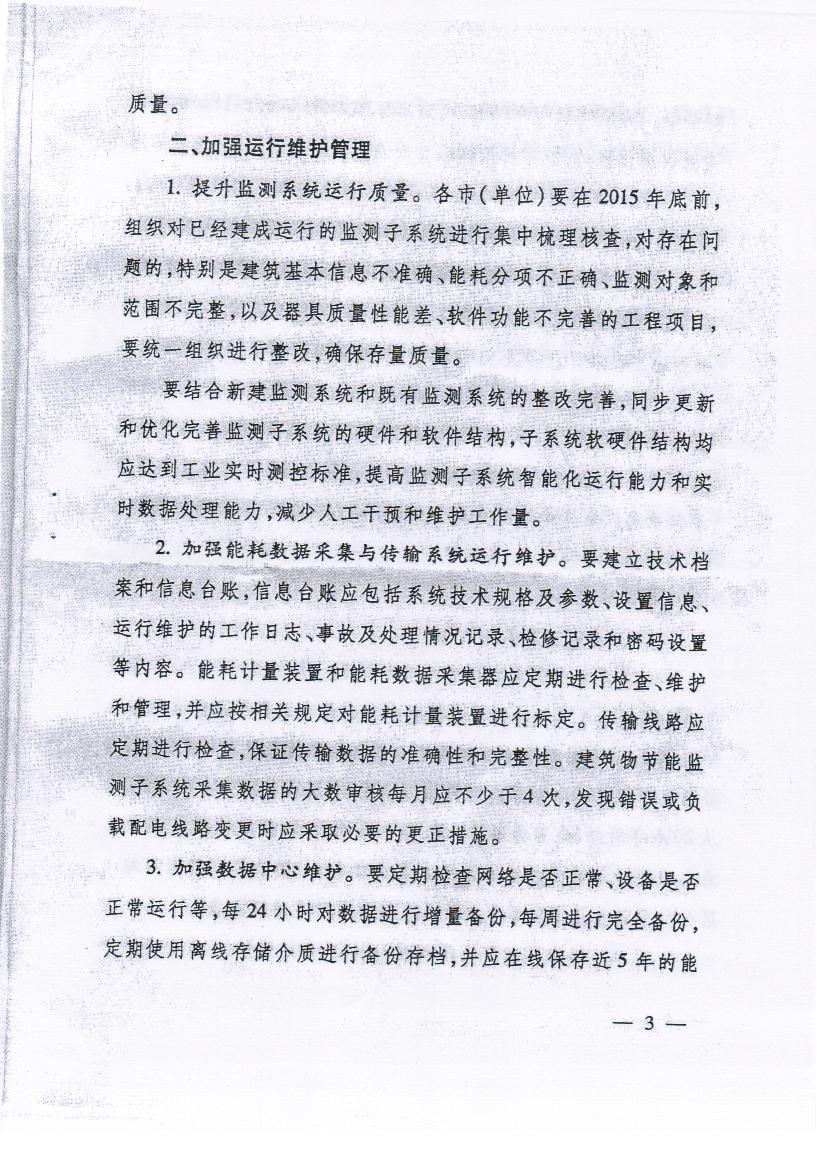 质量。
二、加强运行维护管理
1. 提升监测系统运行质量。各市(单位)要在 2015 年底前，
组织对已经建成运行的监测子系统进行集中梳理核查，对存在问
题的，特别是建筑基本信息不准确、能耗分项不正确、监测对象和
范围不完整，以及器具质量性能差、软件功能不完善的工程项目，
要统一组织进行整改，确保存量质量。
要结合新建监测系统和既有监测系统的整改完善，同步更新
和优化完善监测子系统的硬件和软件结构，子系统软硬件结构均
应达到工业实时测控标准，提高监测子系统智能化运行能力和实
时数据处理能力，减少人工干预和维护工作量。
2. 加强能耗数据采集与传输系统运行维护。要建立技术档
案和信息台账，信息台账应包括系统技术规格及参数、设置信息、
运行维护的工作日志、事故及处理情况记录、检修记录和密码设置
等内容。能耗计量装置和能耗数据采集器应定期进行检查、维护
和管理，并应按相关规定对能耗计量装置进行标定。传输线路应
定期进行检查，保证传输数据的准确性和完整性。建筑物节能监
测子系统采集数据的大数审核每月应不少于 4 次，发现错误或负
载配电线路变更时应采取必要的更正措施。
3. 加强数据中心维护。要定期检查网络是否正常、设备是否
正常运行等，每 24 小时对数据进行增量备份，每周进行完全备份，
定期使用离线存储介质进行备份存档，并应在线保存近 5 年的能
— 3 —